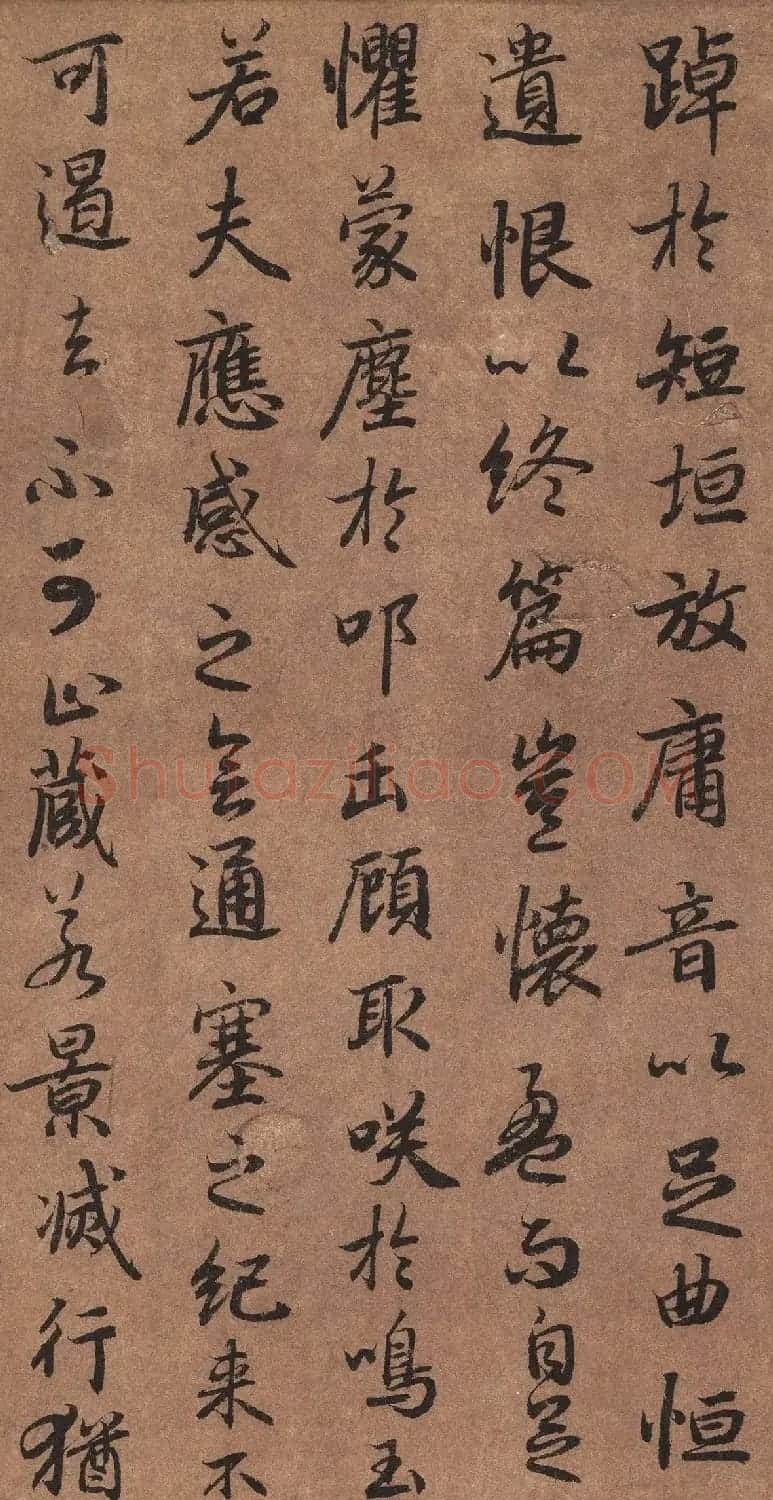 踔於短垣放庸音以足曲恒
遺恨以終篇豈懷盈而自足
懼蒙塵於叩缶顧取咲於鳴玉
若夫應感之會通塞之紀来不
可遏去不可止藏若景滅行猶
Shufaziliao.COM